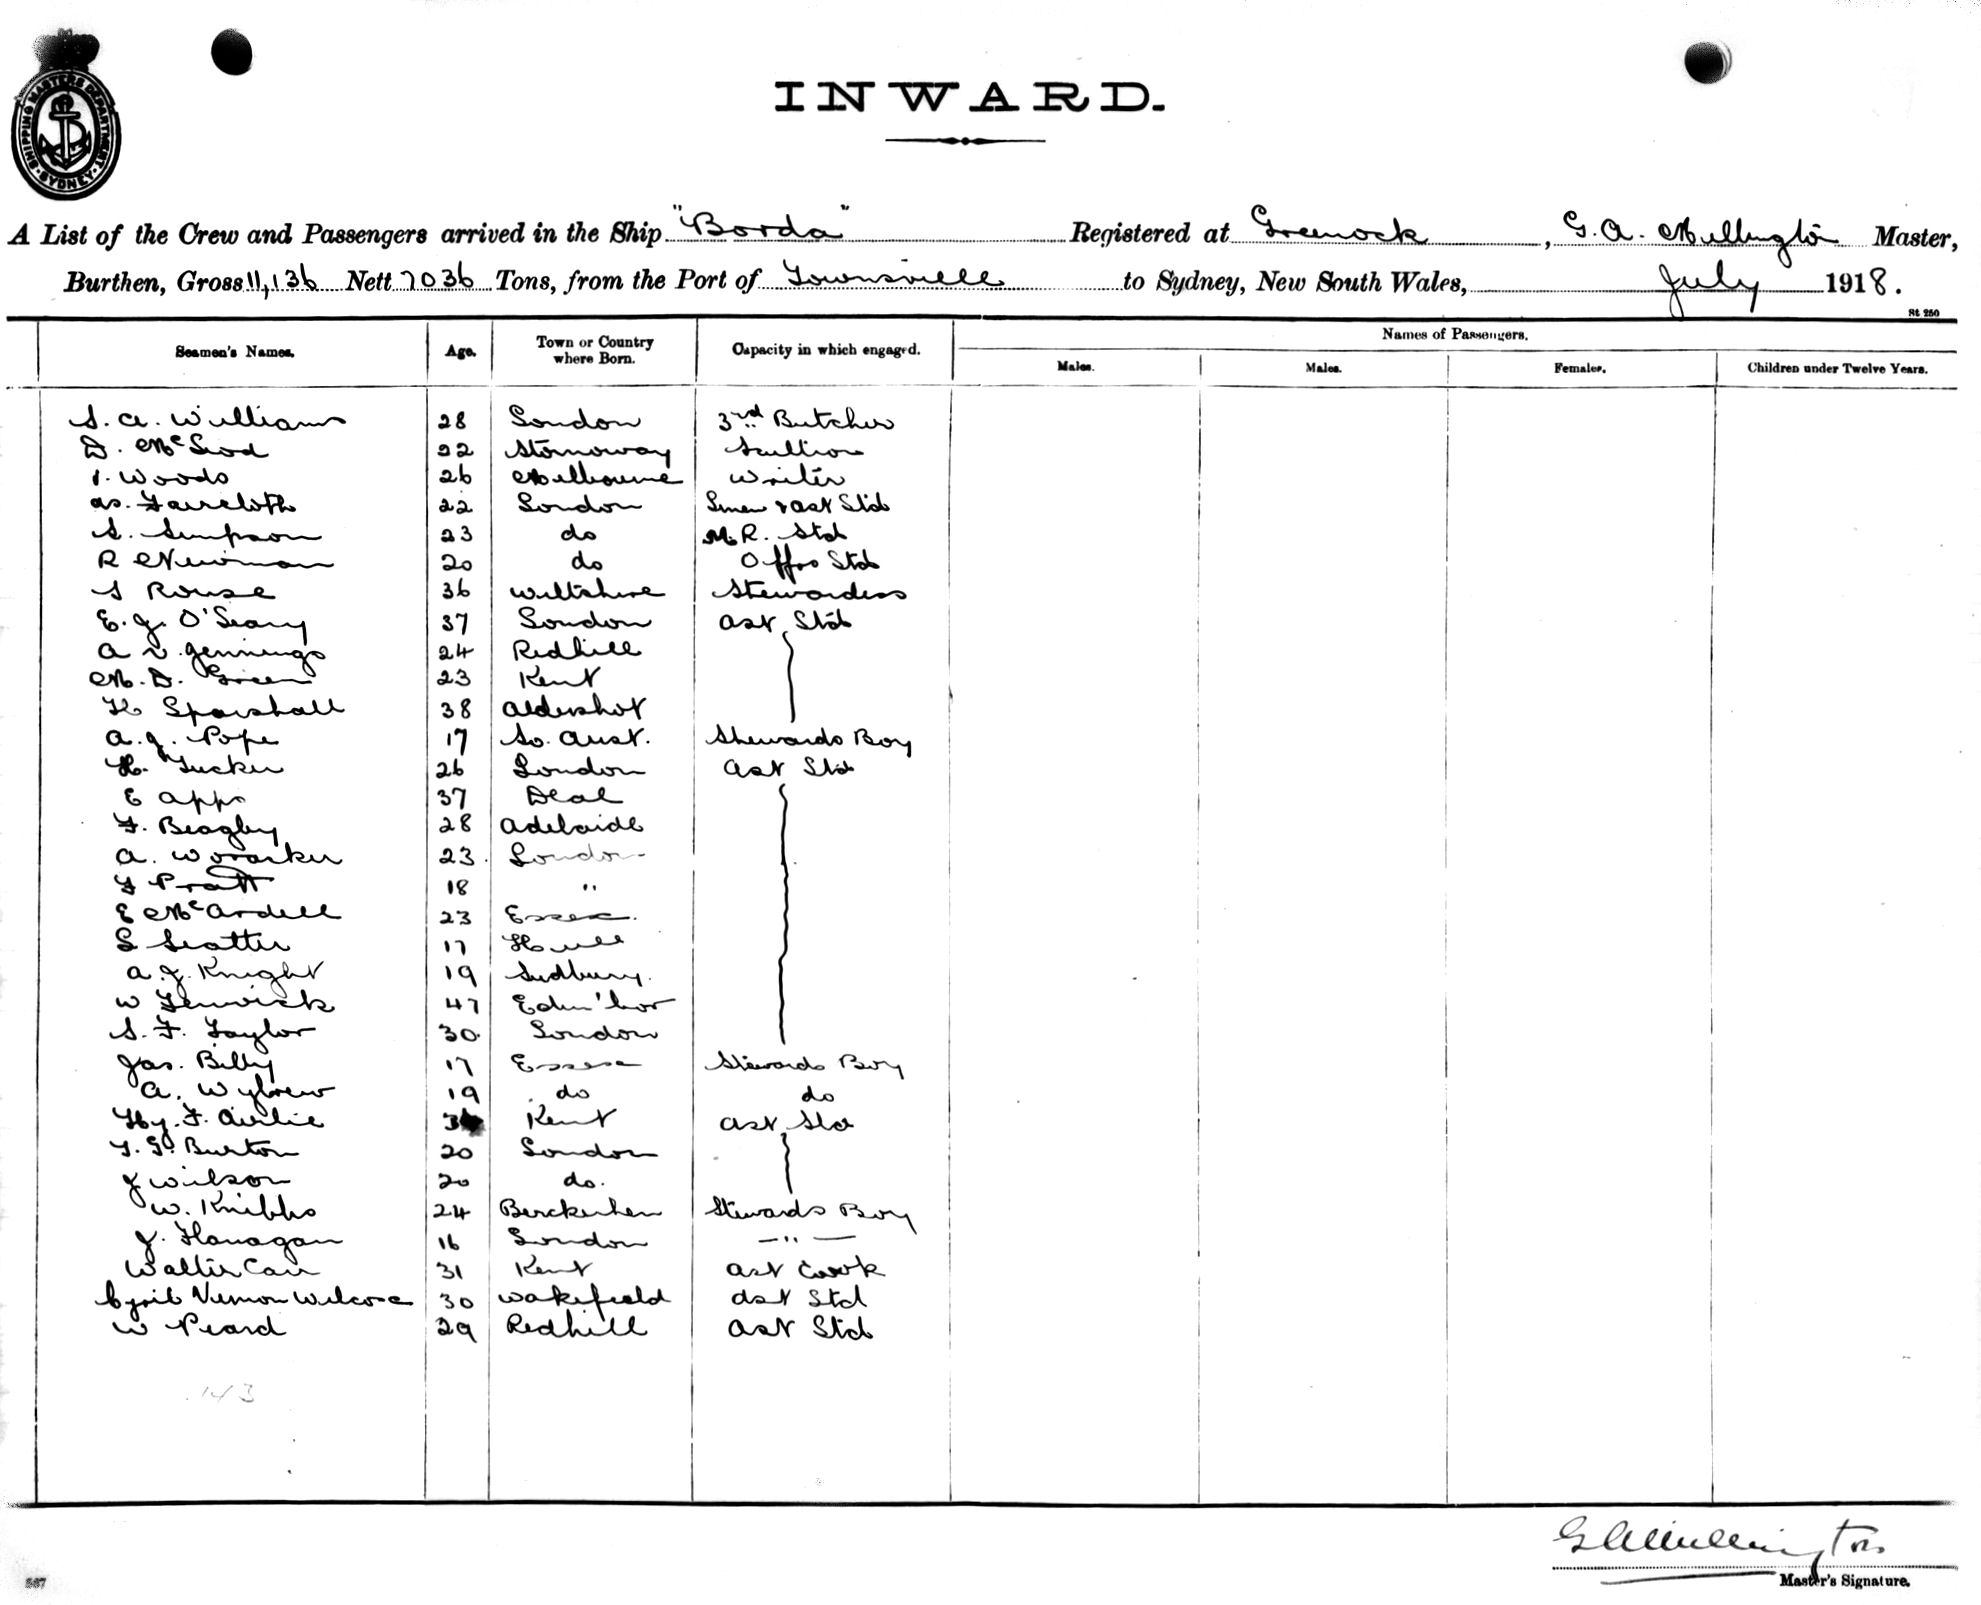 SHIPPING MASTERS DEPARTMENT · SYDNEY ·
INWARD.
A List of the Crew and Passengers arrived in the Ship "Borda" Registered at Greenock, G. A. Millington Master,
Burthen, Gross 11,136 Nett 7036 Tons, from the Port of Townsville to Sydney, New South Wales, July 1918.
St 250
Seamen's Names. Age. Town or Country where Born. Capacity in which engaged. Names of Passengers.
Males. Males. Females. Children under Twelve Years.
S. A. Williams 28 London 3rd Butcher
D. McLeod 22 Stornoway Scullion
Woods 26 Melbourne Writer
as. Faircloth 22 London Linen & Ast Std
S. Simpson 23 do M. R. Std
R Newman 20 do Offrs Std
S Rouse 36 Wiltshire Stewardess
E. J. O'Leary 37 London Ast Std
A V. Jennings 24 Redhill
M. D. Green 23 Kent
H Sparshall 38 Aldershot
A. J. Pope 17 So. Aust. Stewards Boy
H. Tucker 26 London Ast Std
E Apps 37 Deal
F. Beagby 28 Adelaide
A. Woraker 23 London
F Pratt 18 "
E McArdell 23 Essex.
S Scatter 17 Hull
A. J. Knight 19 Sudbury.
W Fenwick 47 Edin'bor
S. F. Taylor 30 London
Jas. Billy 17 Essex Stewards Boy
A. Wybrew 19 do do
Hy. F. Airlie Kent Ast Std
T. G. Burton 20 London
J Wilson 20 do.
W. Knibbs 24 Berckenhen Stewards Boy
J. Flanagan 16 London — " —
Walter Carr 31 Kent Ast Cook
Cyril Vernon Wilcox 30 Wakefield Ast Std
W Peard 29 Redhill Ast Std
143
G A Millington
Master's Signature.
587